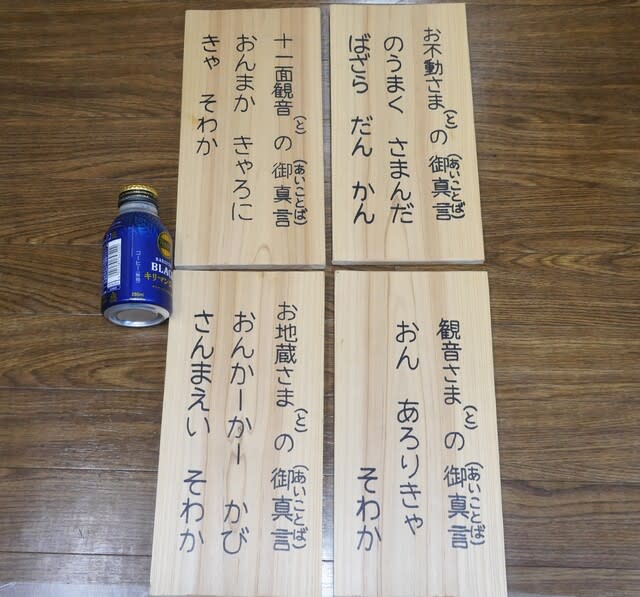 お不動さま(と)の御真言(あいことば)
のうまく さまんだ
ばざら だん かん
十一面観音(と)の御真言(あいことば)
おんまか きゃろに
きゃ そわか
観音さま(と)の御真言(あいことば)
おん あろりきゃ
そわか
お地蔵さま(と)の御真言(あいことば)
おんかーかー かび
さんまえい そわか
BLACK
キリマンジャロ
コーヒー